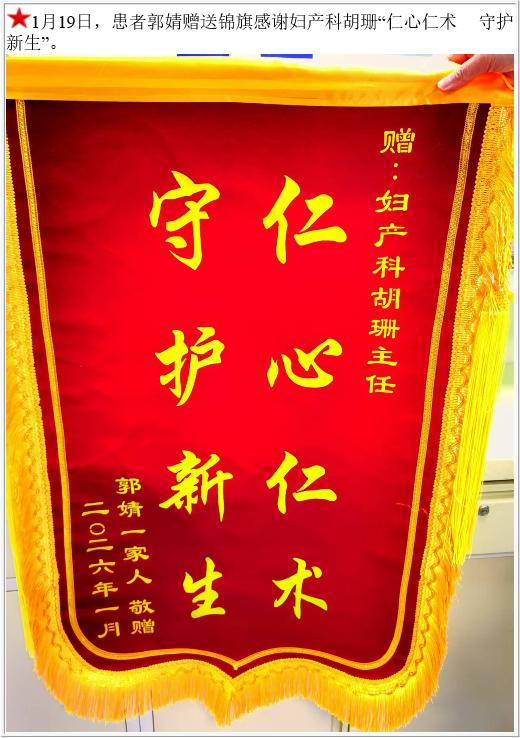 1月19日，患者郭婧赠送锦旗感谢妇产科胡珊“仁心仁术　守护
新生”。
赠：妇产科胡珊主任
仁心仁术
守护新生
郭婧一家人 敬赠
二〇二六年一月